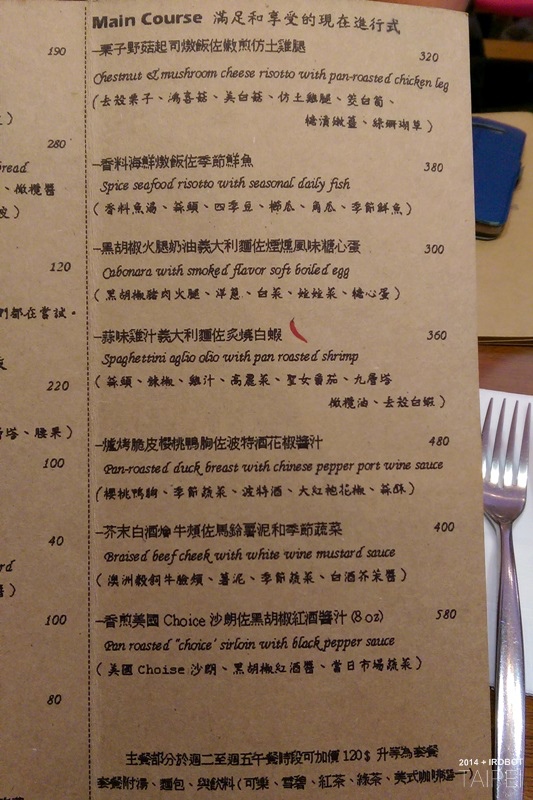 190
)
280
bread
、橄欖醬
皮)
120
們都在嘗試。
220
塔、腰果)
100
40
rd
100
80
Main Course 滿足和享受的現在進行式
–栗子野菇起司燉飯佐嫩煎仿土雞腿 320
Chestnut & mushroom cheese risotto with pan-roasted chicken leg
(去殼栗子、鴻喜菇、美白菇、仿土雞腿、茭白筍、
糖漬嫩薑、綠珊瑚草)
–香料海鮮燉飯佐季節鮮魚 380
Spice seafood risotto with seasonal daily fish
(香料魚湯、蒜頭、四季豆、櫛瓜、角瓜、季節鮮魚)
–黑胡椒火腿奶油義大利麵佐煙燻風味糖心蛋 300
Cabonara with smoked flavor soft boiled egg
(黑胡椒豬肉火腿、洋蔥、白菜、娃娃菜、糖心蛋)
–蒜味雞汁義大利麵佐炙燒白蝦 360
Spaghettini aglio olio with pan roasted shrimp
(蒜頭、辣椒、雞汁、高麗菜、聖女番茄、九層塔
橄欖油、去殼白蝦)
–爐烤脆皮櫻桃鴨胸佐波特酒花椒醬汁 480
Pan-roasted duck breast with chinese pepper port wine sauce
(櫻桃鴨胸、季節蔬菜、波特酒、大紅袍花椒、蒜酥)
–芥末白酒燴牛頰佐馬鈴薯泥和季節蔬菜 400
Braised beef cheek with white wine mustard sauce
(澳洲穀飼牛臉頰、薯泥、季節蔬菜、白酒芥茉醬)
–香煎美國 Choice 沙朗佐黑胡椒紅酒醬汁 (8 oz) 580
Pan roasted "choice' sirloin with black pepper sauce
(美國 Choise 沙朗、黑胡椒紅酒醬、當日市場蔬菜)
主餐部分於週二至週五午餐時段可加價 120$ 升等為套餐
套餐附湯、麵包、與飲料(可樂、雪碧、紅茶、綠茶、美式咖啡
2014 + IROBOT
TAIPEI